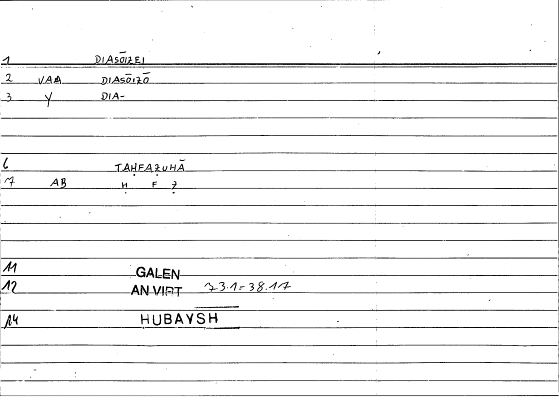 1 DIASŌIZEI
2 VAA DIASŌIZŌ
3 Y DIA-
6 TAḤFAẒUHĀ
7 AB Ḥ F Ẓ
11 GALEN
12 AN VIRT 73.1=38.17
14 HUBAYSH